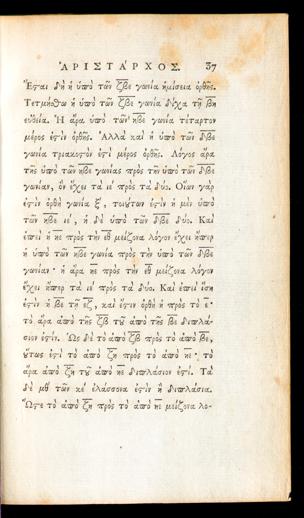 ἈΡΙΣΤΑΡΧΟΣ. 37
Ἔςαι δὴ ἡ ὑπὸ τῶν ζβε γωνία ἡμίσεια ὀρθῆς.
Τετμήσθω ἡ ὑπὸ τῶν ζβε γωνία δίχα τῇ βη
εὐθεία. Ἡ ἄρα ὑπὸ τῶν ηβε γωνία τέταρτον
μέρος ἐςὶν ὀρθῆς. Ἀλλὰ καὶ ἡ ὑπὸ τῶν δβε
γωνία τριακοςόν ἐςι μέρος ὀρθῆς. Λόγος ἄρα
τῆς ὑπὸ τῶν ηβε γωνίας πρὸς τὴν ὑπὸ τῶν δβε
γωνίαν, ὃν ἔχει τὰ ιε πρὸς τὰ δύο. Οἵων γάρ
ἐςιν ὀρθὴ γωνία ξ, τοιούτων ἐςὶν ἡ μὲν ὑπὸ
τῶν ηβε ιε, ἡ δὲ ὑπὸ τῶν δβε δύο. Καὶ
ἐπεὶ ἡ ηε πρὸς τὴν εθ μείζονα λόγον ἔχει ἤπερ
ἡ ὑπὸ τῶν ηβε γωνία πρὸς τὴν ὑπὸ τῶν δβε
γωνίαν· ἡ ἄρα ηε πρὸς τὴν εθ μείζονα λόγον
ἔχει ἤπερ τὰ ιε πρὸς τὰ δύο. Καὶ ἐπεὶ ἴση
ἐςὶν ἡ βε τῇ εζ, καὶ ἔςιν ὀρθὴ ἡ πρὸς τὸ ε·
τὸ ἄρα ἀπὸ τῆς ζβ τοῦ ἀπὸ τῆς βε διπλά-
σιον ἐςίν. Ὡς δὲ τὸ ἀπὸ ζβ πρὸς τὸ ἀπὸ βε,
οὕτως ἐςὶ τὸ ἀπὸ ζη πρὸς τὸ ἀπὸ ηε· τὸ
ἄρα ἀπὸ ζη τοῦ ἀπὸ ηε διπλάσιον ἐςί. Τὰ
δὲ μθ τῶν κε ἐλάσσονα ἐςὶν ἢ διπλάσια.
Ὥςε τὸ ἀπὸ ζη πρὸς τὸ ἀπὸ ηε μείζονα λό-